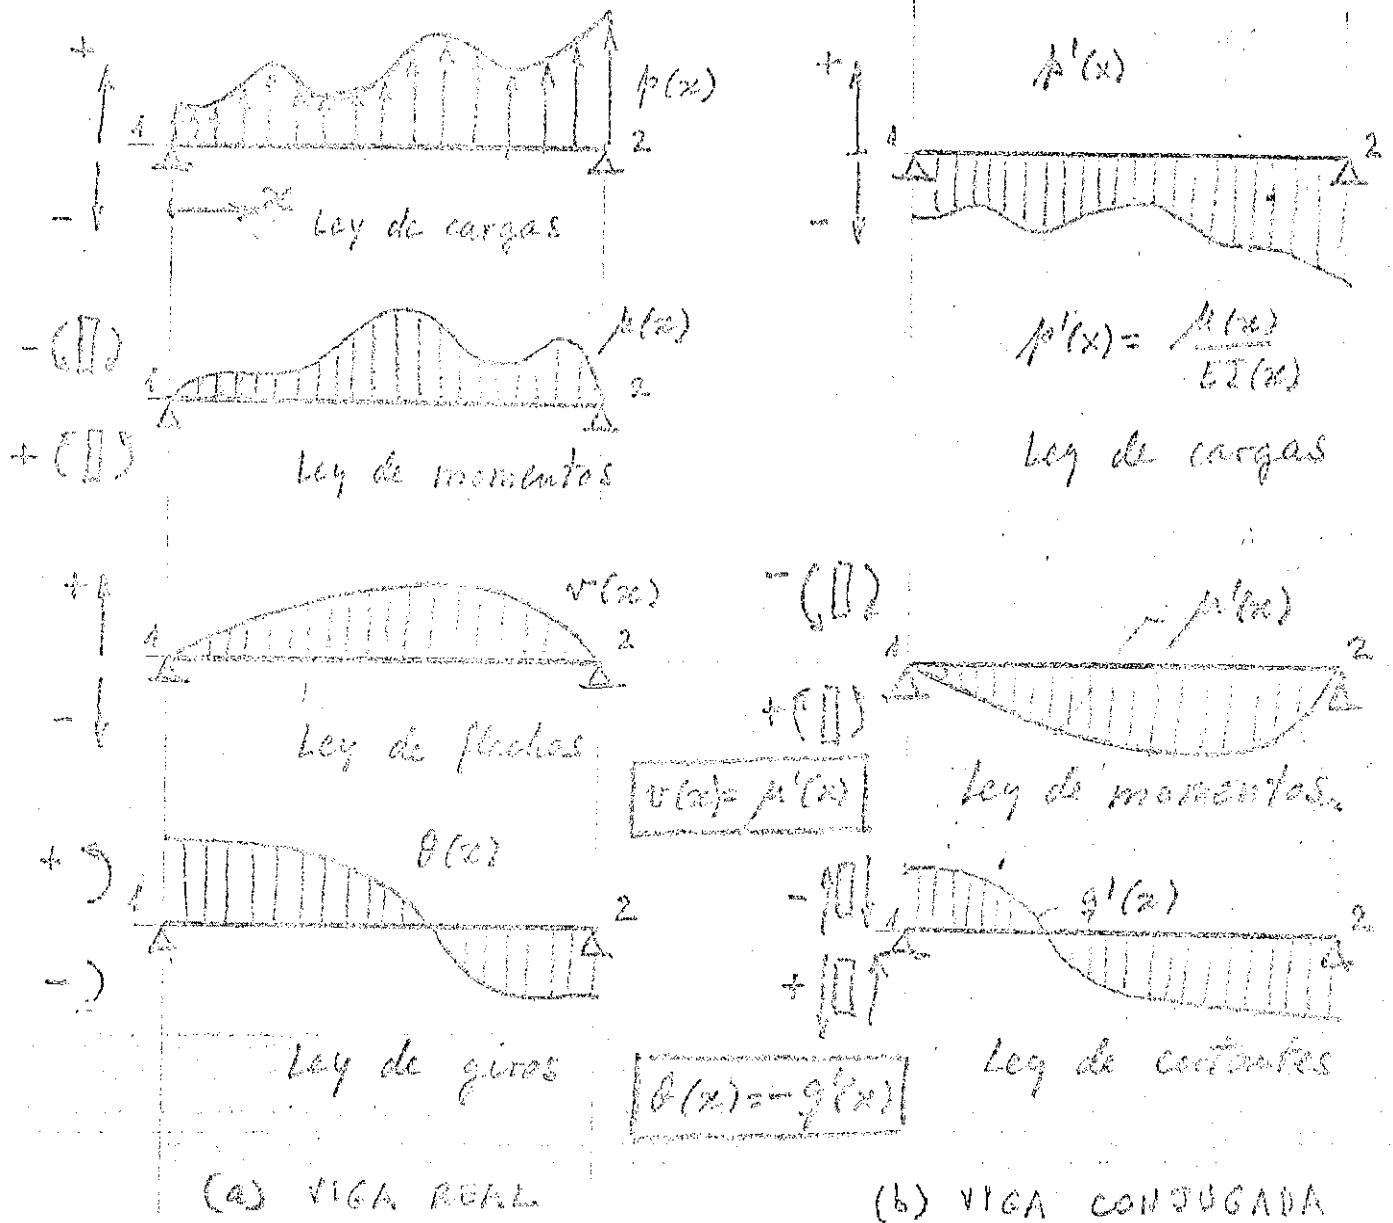 +
-
1
2
p(x)
x
Ley de cargas
-
+
1
2
μ(x)
Ley de momentos
+
-
1
2
v(x)
Ley de flechas
+
-
1
2
θ(x)
Ley de giros
(a) VIGA REAL
+
-
1
2
p'(x)
p'(x) = μ(x) / EI(x)
Ley de cargas
-
+
1
2
μ'(x)
v(x) = μ'(x)
Ley de momentos.
-
+
1
2
g'(x)
θ(x) = - g'(x)
Ley de cortantes
(b) VIGA CONJUGADA